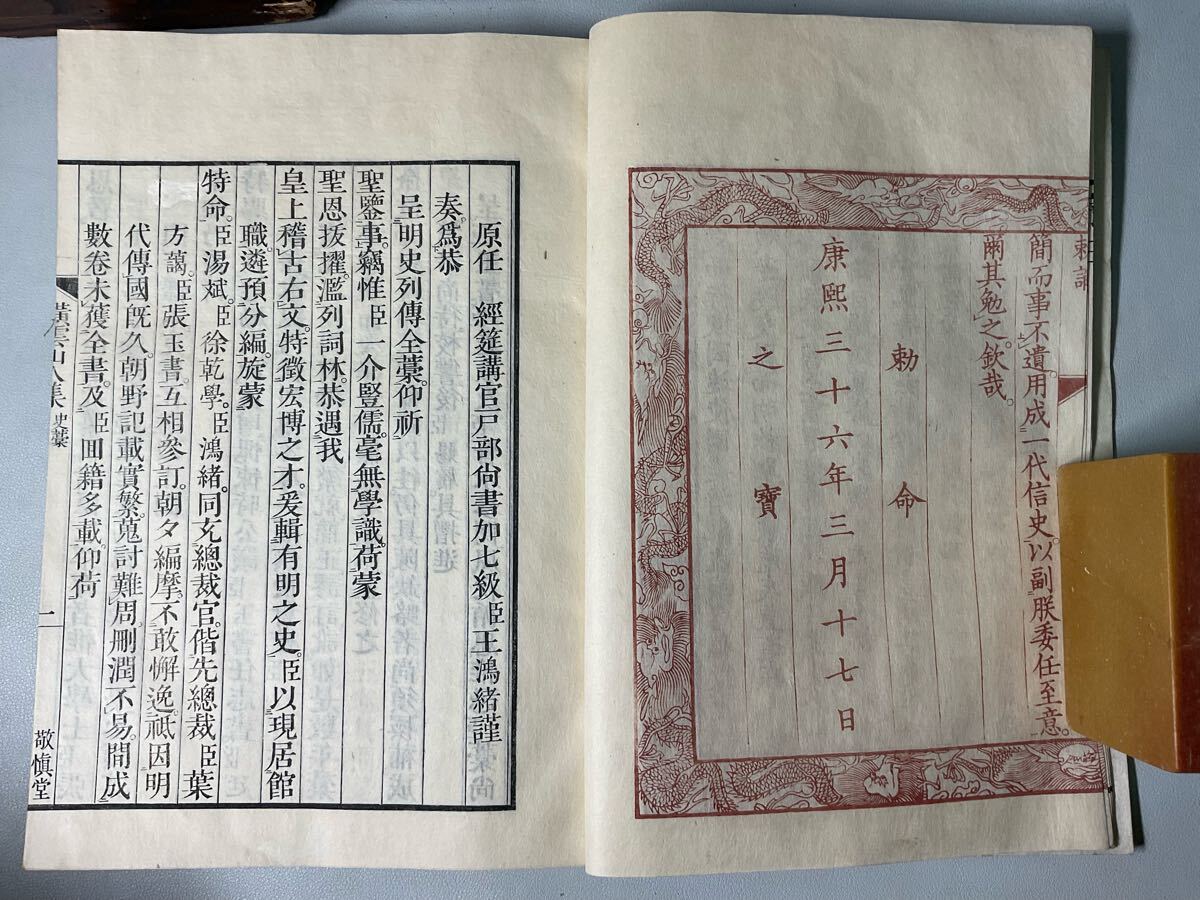 簡而事不遺。用成一代信史。以副朕委任至意。
爾其勉之。欽哉。
勅命
康熙三十六年三月十七日
之寶
原任 經筵講官戶部尚書加七級臣王鴻緒謹
奏。爲恭
呈明史列傳全藁。仰祈
聖鑒事。竊惟臣一介豎儒。毫無學識。荷蒙
聖恩拔擢。濫列詞林。恭遇我
皇上稽古右文。特徵宏博之才。爰輯有明之史。臣以現居館
職。遴預分編。旋蒙
特命。臣湯斌。臣徐乾學。臣鴻緒。同充總裁官。偕先總裁臣葉
方藹。臣張玉書。互相參訂。朝夕編摩。不敢懈逸。祗因明
代傳國旣久。朝野記載實繁。蒐討難周。刪潤不易。間成
數卷。未獲全書。及臣回籍多載。仰荷
橫雲山人集 史藁
一
敬慎堂